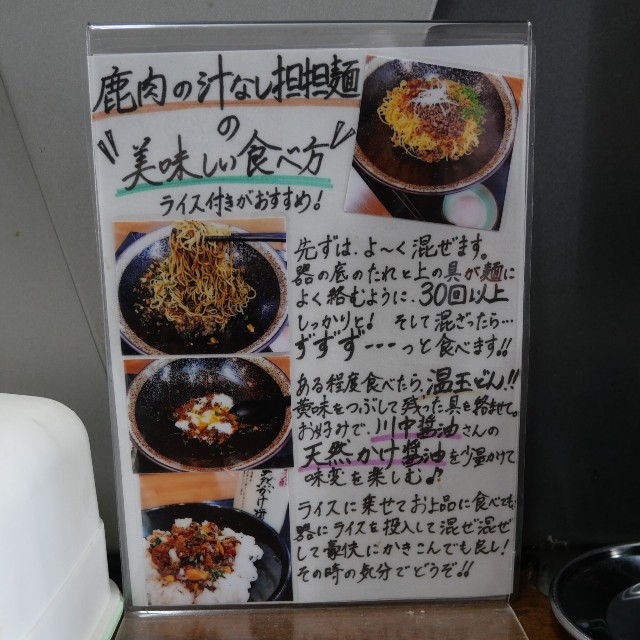 鹿肉の汁なし担担麺
の
"美味しい食べ方"
ライス付きがおすすめ!
先ずは、よ〜く混ぜます。
器の底のたれと上の具が麺に
よく絡むように、30回以上
しっかりと! そして混ざったら…
ずずず・・・っと食べます!!
ある程度食べたら、温玉どん!!
黄味をつぶして残った具を絡ませて。
お好みで、川中醤油さんの
天然かけ醤油を少量かけて
味変を楽しむ♪
ライスに乗せてお上品に食べても、
器にライスを投入して混ぜ混ぜ
して豪快にかきこんでも良し!
その時の気分でどうぞ!!